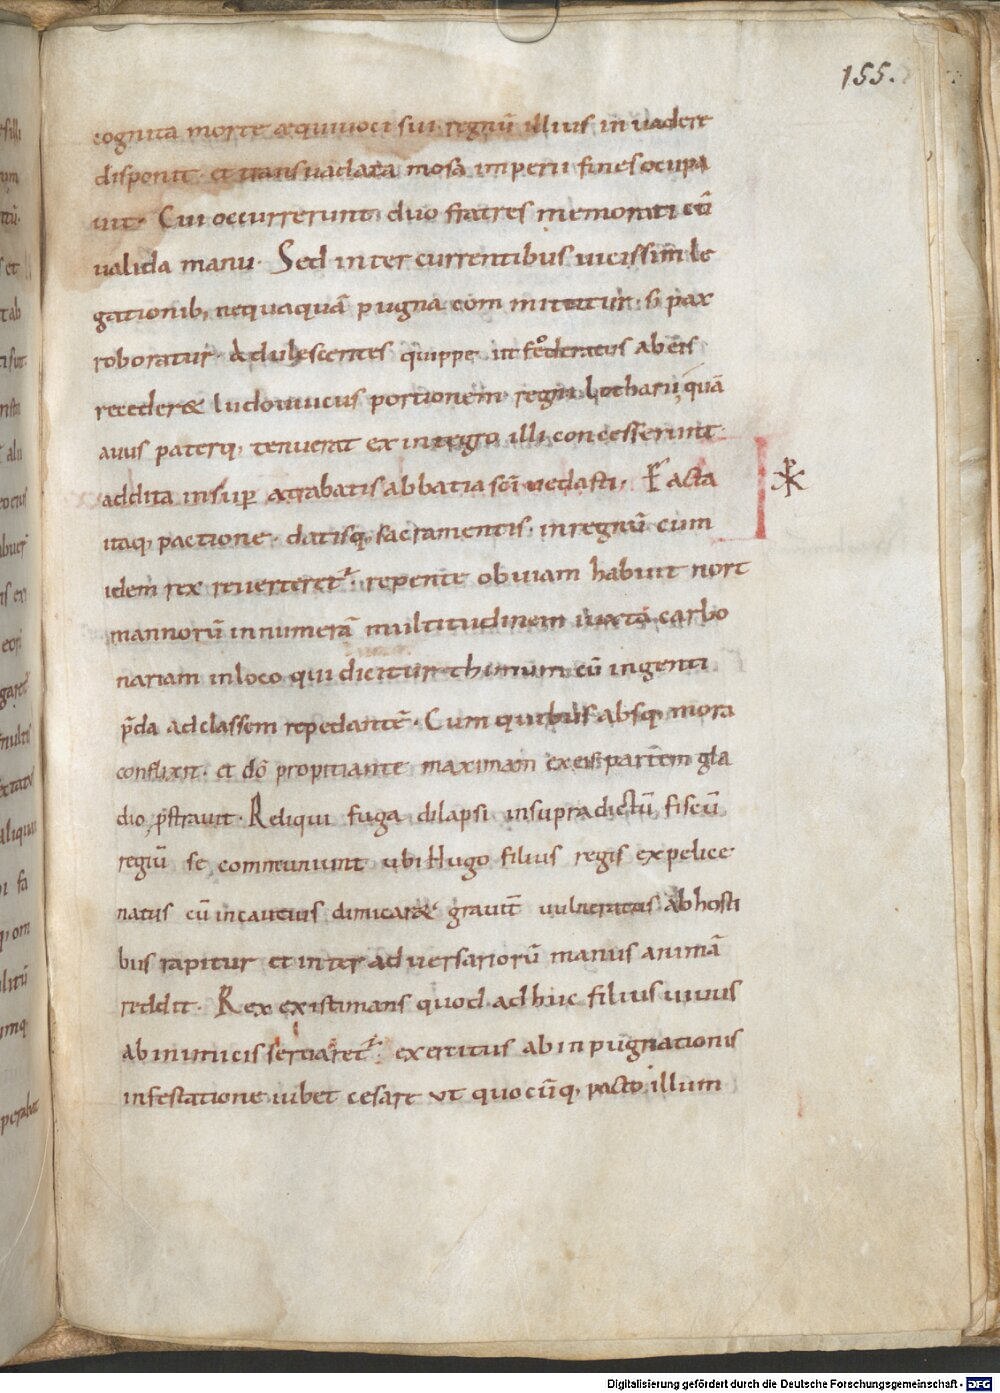 155.
cognita morte aequiuoci sui regnū illius inuadere
disponit · et transuadata mosa imperii fines ocupa
uit · Cui occurrerunt duo fratres memorati cū
ualida manu · Sed intercurrentibus uicissim le
gationib; nequaquā pugna committitur · s; pax
roboratur · Adulescentes quippe ut foederatus ab eis
receder& ludouuicus portionem regni lotharii, quā
auus paterq; tenuerat ex integro illi concesserunt
addita insup atrabatis abbatia scī uedasti · Facta
itaq; pactione · datisq; sacramentis · in regnū cum
idem rex reuerteret · repente obuiam habuit nort
mannorū innumerā multitudinem iuxta carbo
nariam in loco qui dicitur thimum cū ingenti
p̄da ad classem repedantē · Cum quibus absq; mora
conflixit · et dō propitiante maximam ex eis partem gla
dio p̄strauit · Reliqui fuga dilapsi in supradictū fiscū
regiū se communiunt ubi Hugo filius regis ex pelice
natus cū incautius dimicar& grauit̄ uulneratus ab hosti
bus rapitur et inter aduersariorū manus animā
reddit · Rex existimans quod adhuc filius uiuus
ab inimicis seruaret · exercitus ab inpugnationis
infestatione iubet cesare ut quocūq; pacto illum
Digitalisierung gefördert durch die Deutsche Forschungsgemeinschaft - DFG